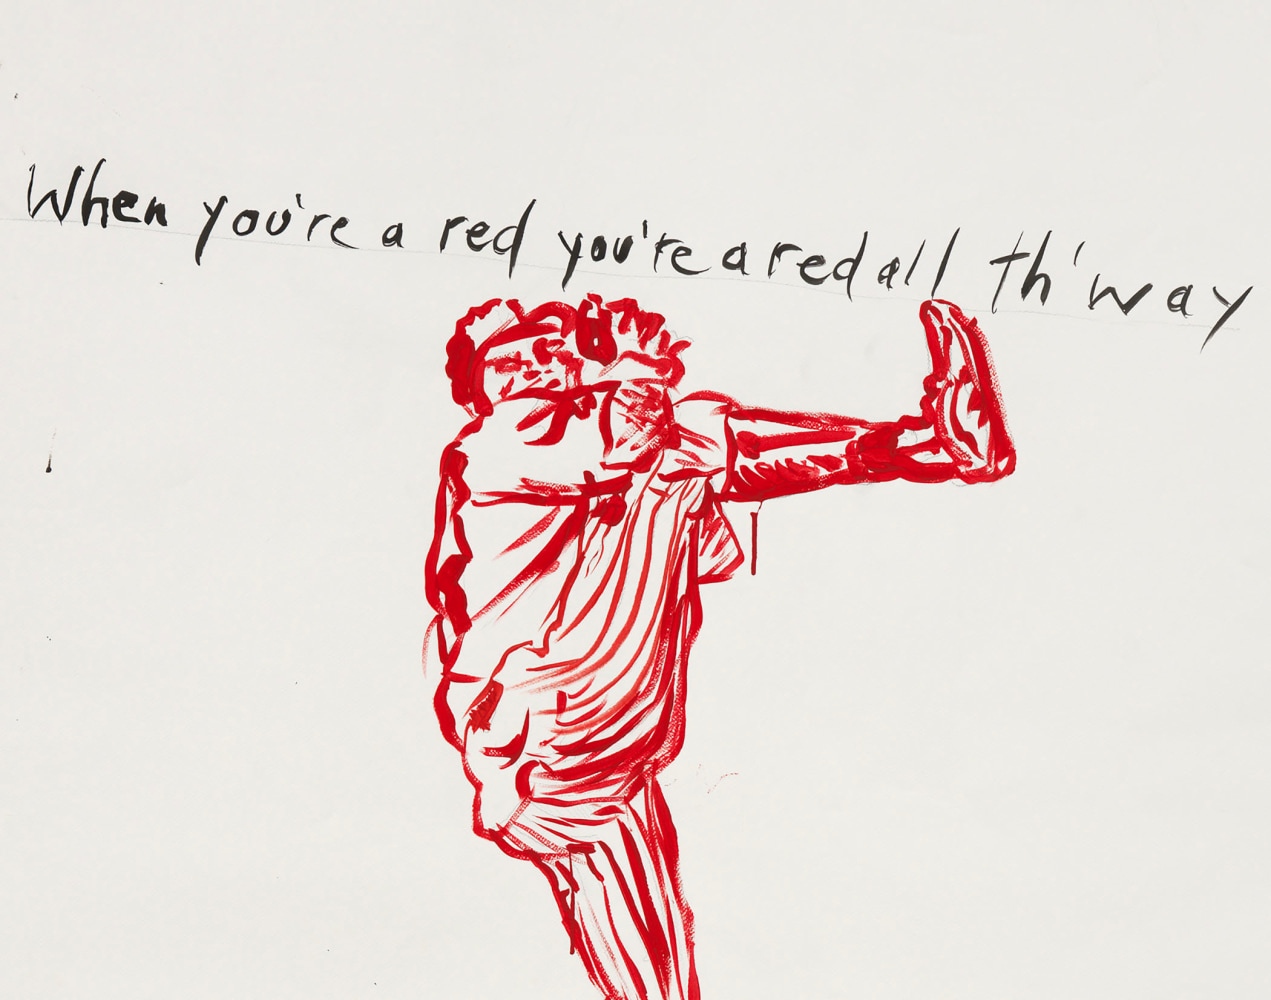 When you're a red you're a red all th' way